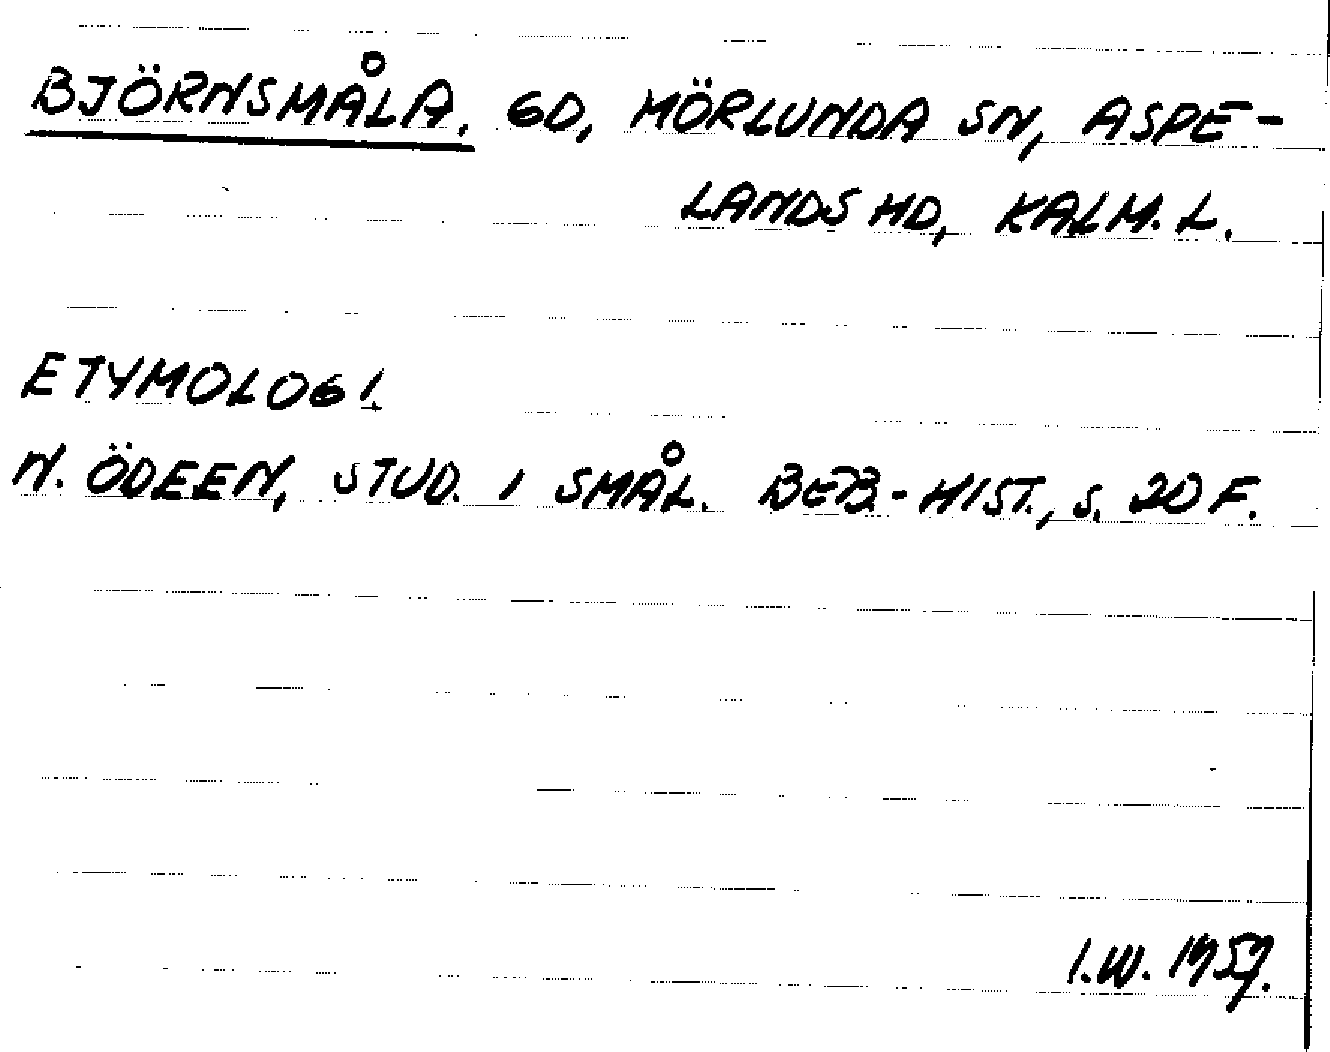 BJÖRNSMÅLA. GD, MÖRLUNDA SN, ASPE-
LANDS HD, KALM. L.
ETYMOLOGI.
N. ÖDEEN, STUD. I SMÅL. BEB.-HIST., S. 20 F.
I.W. 1957.